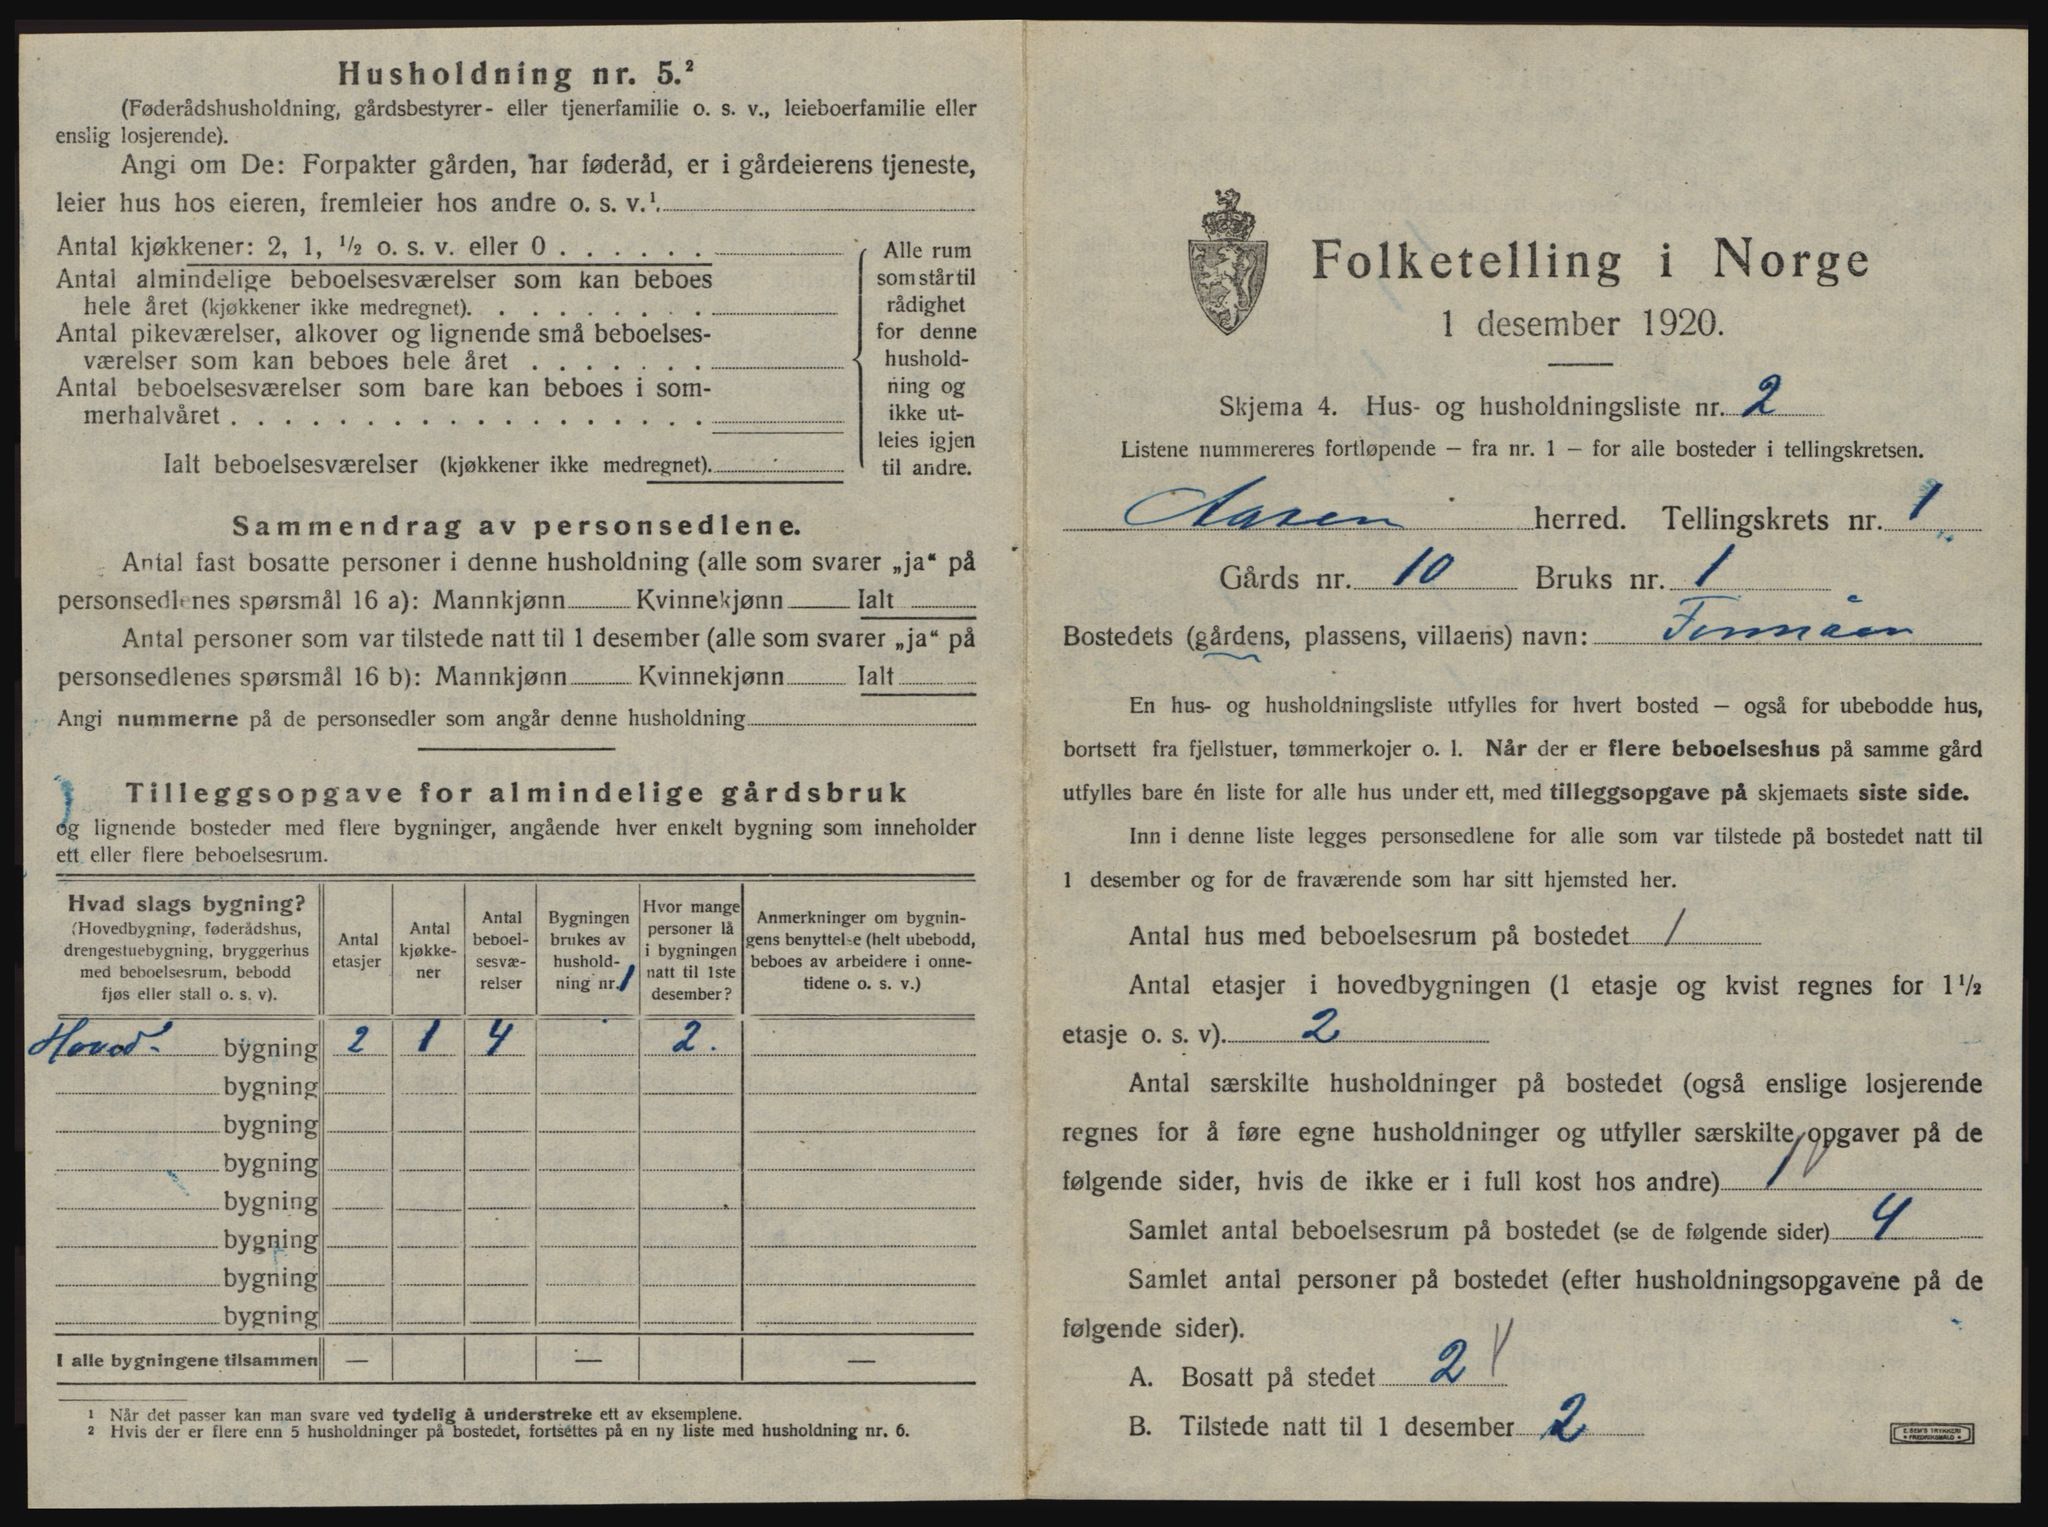 Husholdning nr. 5.²
(Føderådshusholdning, gårdsbestyrer- eller tjenerfamilie o. s. v., leieboerfamilie eller
enslig losjerende).
Angi om De: Forpakter gården, har føderåd, er i gårdeierens tjeneste,
leier hus hos eieren, fremleier hos andre o. s. v.¹.
Antal kjøkkener: 2, 1, ½ o. s. v. eller 0 . . . . . .
Antal almindelige beboelsesværelser som kan beboes
hele året (kjøkkener ikke medregnet). . . . . . . . .
Antal pikeværelser, alkover og lignende små beboelses-
værelser som kan beboes hele året . . . . . . .
Antal beboelsesværelser som bare kan beboes i som-
merhalvåret . . . . . . . . . . . . . . . . . .
Ialt beboelsesværelser (kjøkkener ikke medregnet).
Alle rum
som står til
rådighet
for denne
hushold-
ning og
ikke ut-
leies igjen
til andre.
Sammendrag av personsedlene.
Antal fast bosatte personer i denne husholdning (alle som svarer „ja“ på
personsedlenes spørsmål 16 a): Mannkjønn Kvinnekjønn Ialt
Antal personer som var tilstede natt til 1 desember (alle som svarer „ja“ på
personsedlenes spørsmål 16 b): Mannkjønn Kvinnekjønn Ialt
Angi nummerne på de personsedler som angår denne husholdning
Tilleggsopgave for almindelige gårdsbruk
og lignende bosteder med flere bygninger, angående hver enkelt bygning som inneholder
ett eller flere beboelsesrum.
Hvad slags bygning?
(Hovedbygning, føderådshus,
drengestuebygning, bryggerhus
med beboelsesrum, bebodd
fjøs eller stall o. s. v).
Antal
etasjer
Antal
kjøkke-
ner
Antal
beboel-
sesvæ-
relser
Bygningen
brukes av
hushold-
ning nr. 1
Hvor mange
personer lå
i bygningen
natt til 1ste
desember?
Anmerkninger om bygnin-
gens benyttelse (helt ubebodd,
beboes av arbeidere i onne-
tidene o. s. v.)
Hoved- bygning 2 1 4 2.
bygning
bygning
bygning
bygning
bygning
bygning
bygning
I alle bygningene tilsammen — — —
¹ Når det passer kan man svare ved tydelig å understreke ett av eksemplene.
² Hvis der er flere enn 5 husholdninger på bostedet, fortsettes på en ny liste med husholdning nr. 6.
Folketelling i Norge
1 desember 1920.
Skjema 4. Hus- og husholdningsliste nr. 2
Listene nummereres fortløpende — fra nr. 1 — for alle bosteder i tellingskretsen.
Aasen herred. Tellingskrets nr. 1
Gårds nr. 10 Bruks nr. 1
Bostedets (gårdens, plassens, villaens) navn:
En hus- og husholdningsliste utfylles for hvert bosted — også for ubebodde hus,
bortsett fra fjellstuer, tømmerkojer o. l. Når der er flere beboelseshus på samme gård
utfylles bare én liste for alle hus under ett, med tilleggsopgave på skjemaets siste side.
Inn i denne liste legges personsedlene for alle som var tilstede på bostedet natt til
1 desember og for de fraværende som har sitt hjemsted her.
Antal hus med beboelsesrum på bostedet 1
Antal etasjer i hovedbygningen (1 etasje og kvist regnes for 1½
etasje o. s. v). 2
Antal særskilte husholdninger på bostedet (også enslige losjerende
regnes for å føre egne husholdninger og utfyller særskilte opgaver på de
følgende sider, hvis de ikke er i full kost hos andre) 1
Samlet antal beboelsesrum på bostedet (se de følgende sider) 4
Samlet antal personer på bostedet (efter husholdningsopgavene på de
følgende sider).
A. Bosatt på stedet 2
B. Tilstede natt til 1 desember 2
E. SEM'S TRYKKERI
• FREDRIKSHALD •